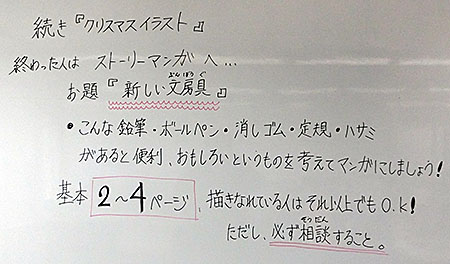 続き『クリスマスイラスト』
終わった人は ストーリーマンガへ…
お題『新しい文房具』
ぶんぼうぐ
•こんな鉛筆・ボールペン・消しゴム・定規・ハサミ
があると便利、おもしろいというものを考えてマンガにしましょう!
基本 2〜4ページ、描きなれている人はそれ以上でもO.K!
ただし、必ず相談すること。
そうだん